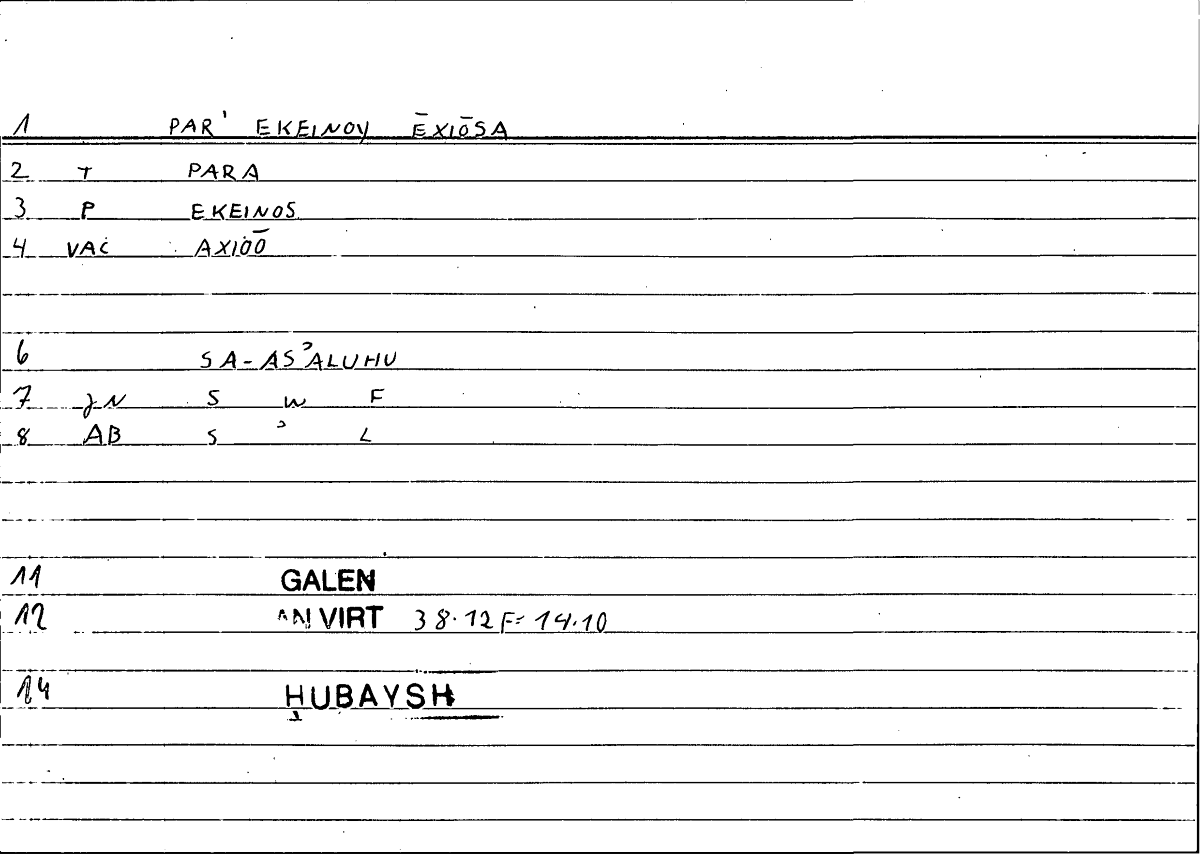 1 PAR' EKEINOY ĒXIŌSA
2 T PARA
3 P EKEINOS
4 VAC AXIOŌ
6 SA-ASʾALUHU
7 JN S W F
8 AB S ʾ L
11 GALEN
12 AN VIRT 38.12 F= 14.10
14 ḤUBAYSH